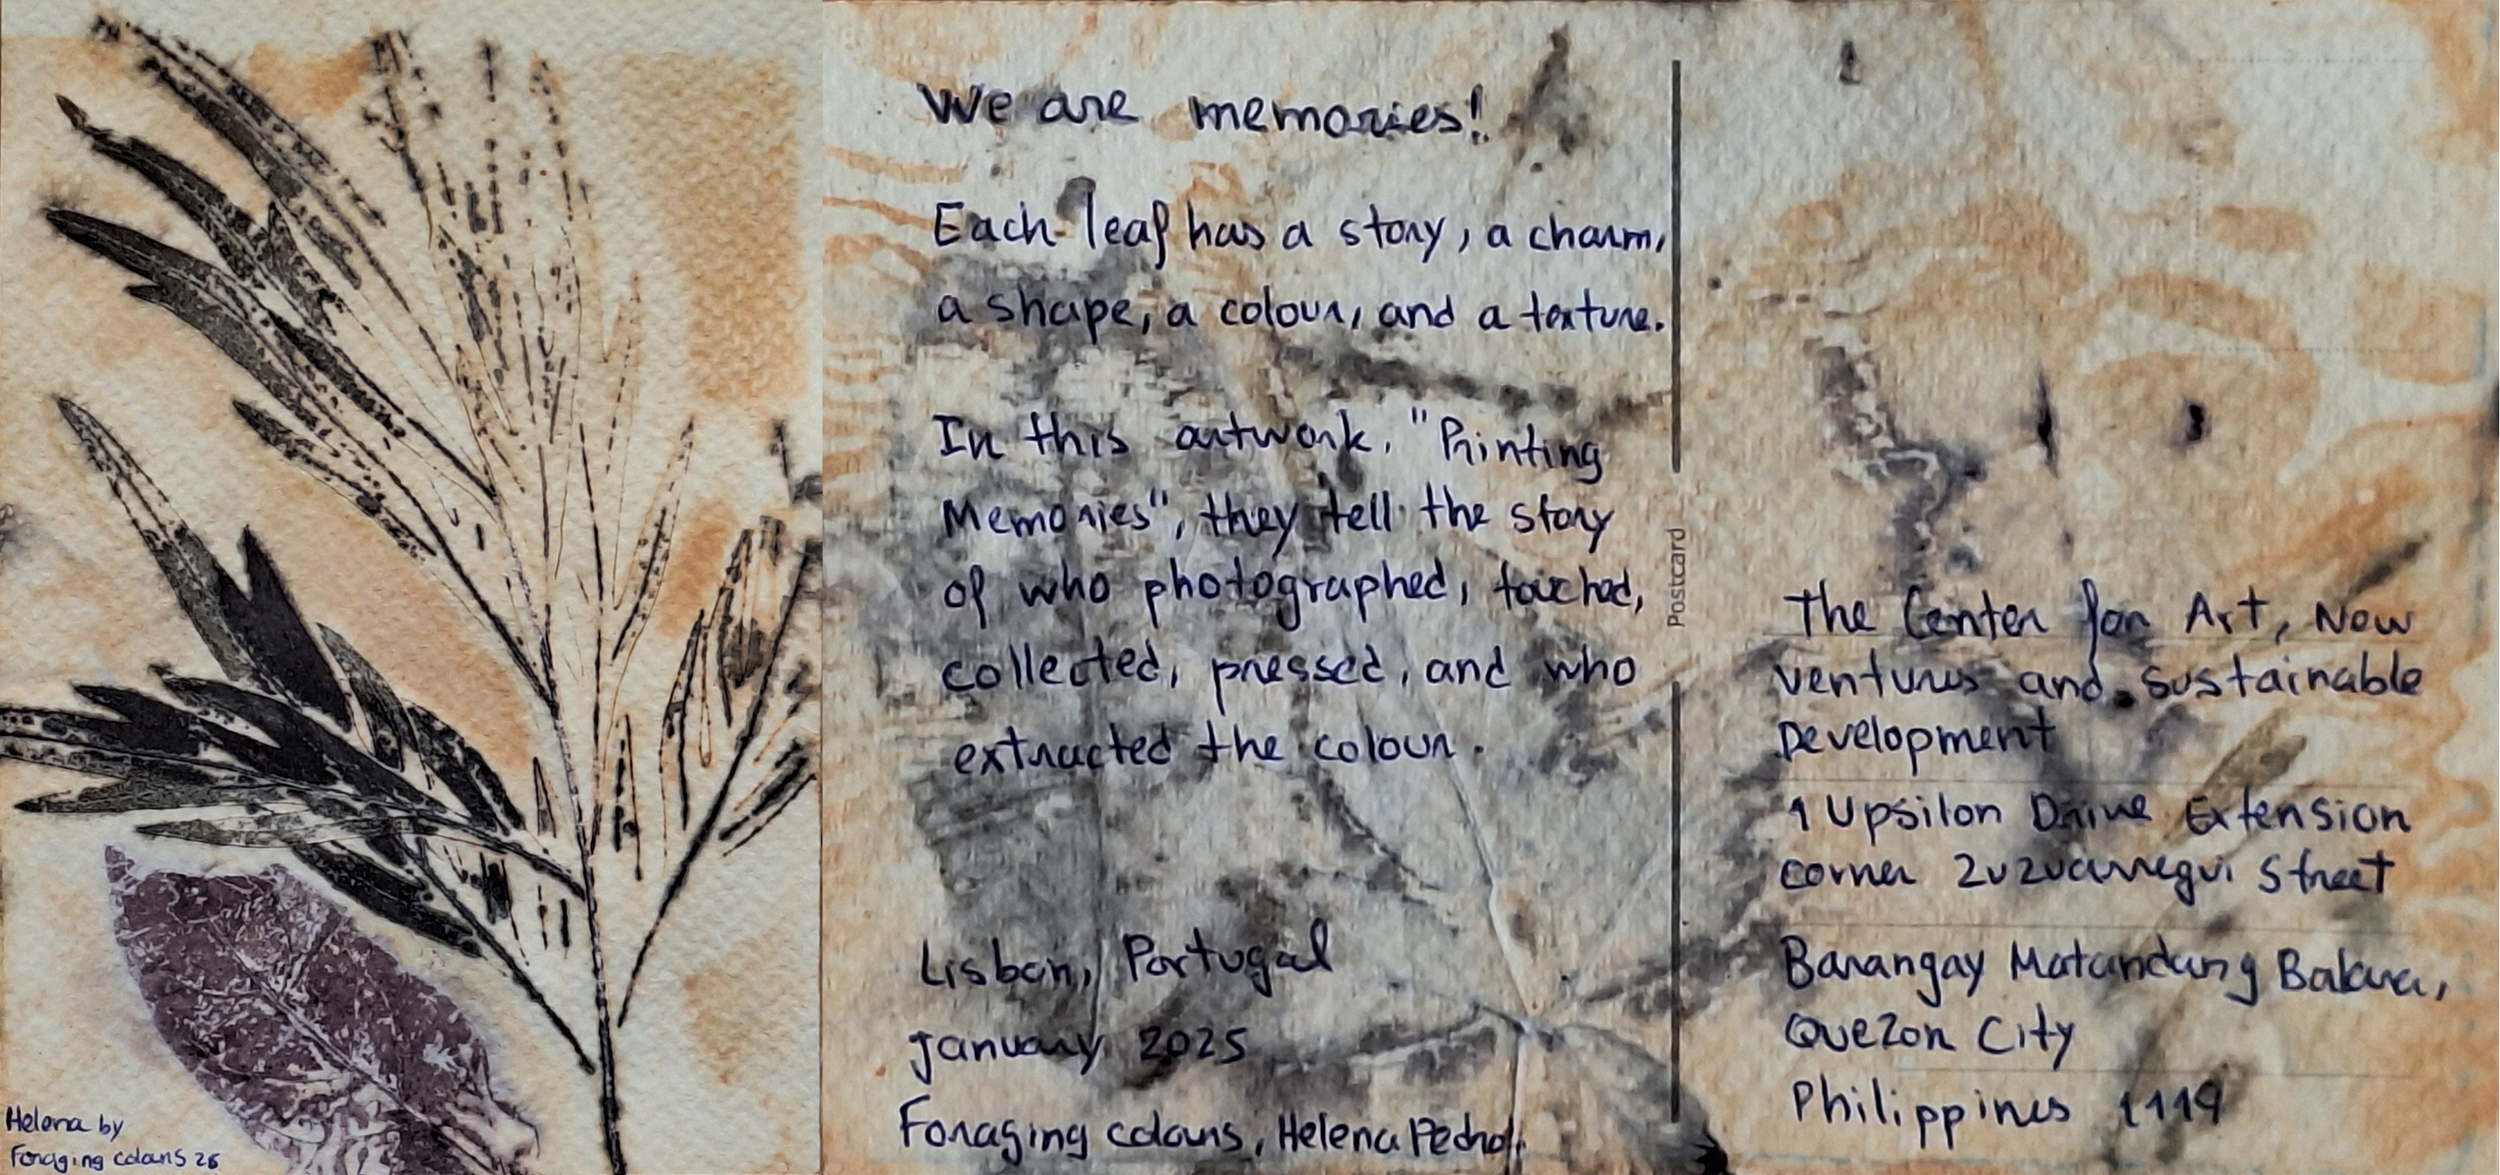 Helena by
Foraging colours 25
We are memories!
Each leaf has a story, a charm,
a shape, a colour, and a texture.
In this artwork, "Printing
Memories", they tell the story
of who photographed, touched,
collected, pressed, and who
extracted the colour.
Lisbon, Portugal
January 2025
Foraging colours, Helena Pedro.
Postcard
The Center for Art, New
ventures and sustainable
Development
1 Upsilon Drive Extension
corner Zuzuarregui Street
Barangay Matandang Balara,
Quezon City
Philippines 1119